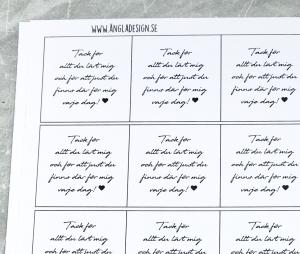 WWW.ÄNGLADESIGN.SE
Tack för
allt du lärt mig
och för att just du
finns där för mig
varje dag! ♥
Tack för
allt du lärt mig
och för att just du
finns där för mig
varje dag! ♥
Tack för
allt du lärt mig
och för att just du
finns där för mig
Tack för
allt du lärt mig
och för att just du
finns där för mig
varje dag! ♥
Tack för
allt du lärt mig
och för att just du
finns där för mig
varje dag! ♥
Tack för
allt du lärt mig
och för att just du
finns där för mig
Tack för
allt du lärt mig
och för att just du
Tack för
allt du lärt mig
och för att just du
Tack för
allt du lärt mig
och för att just du